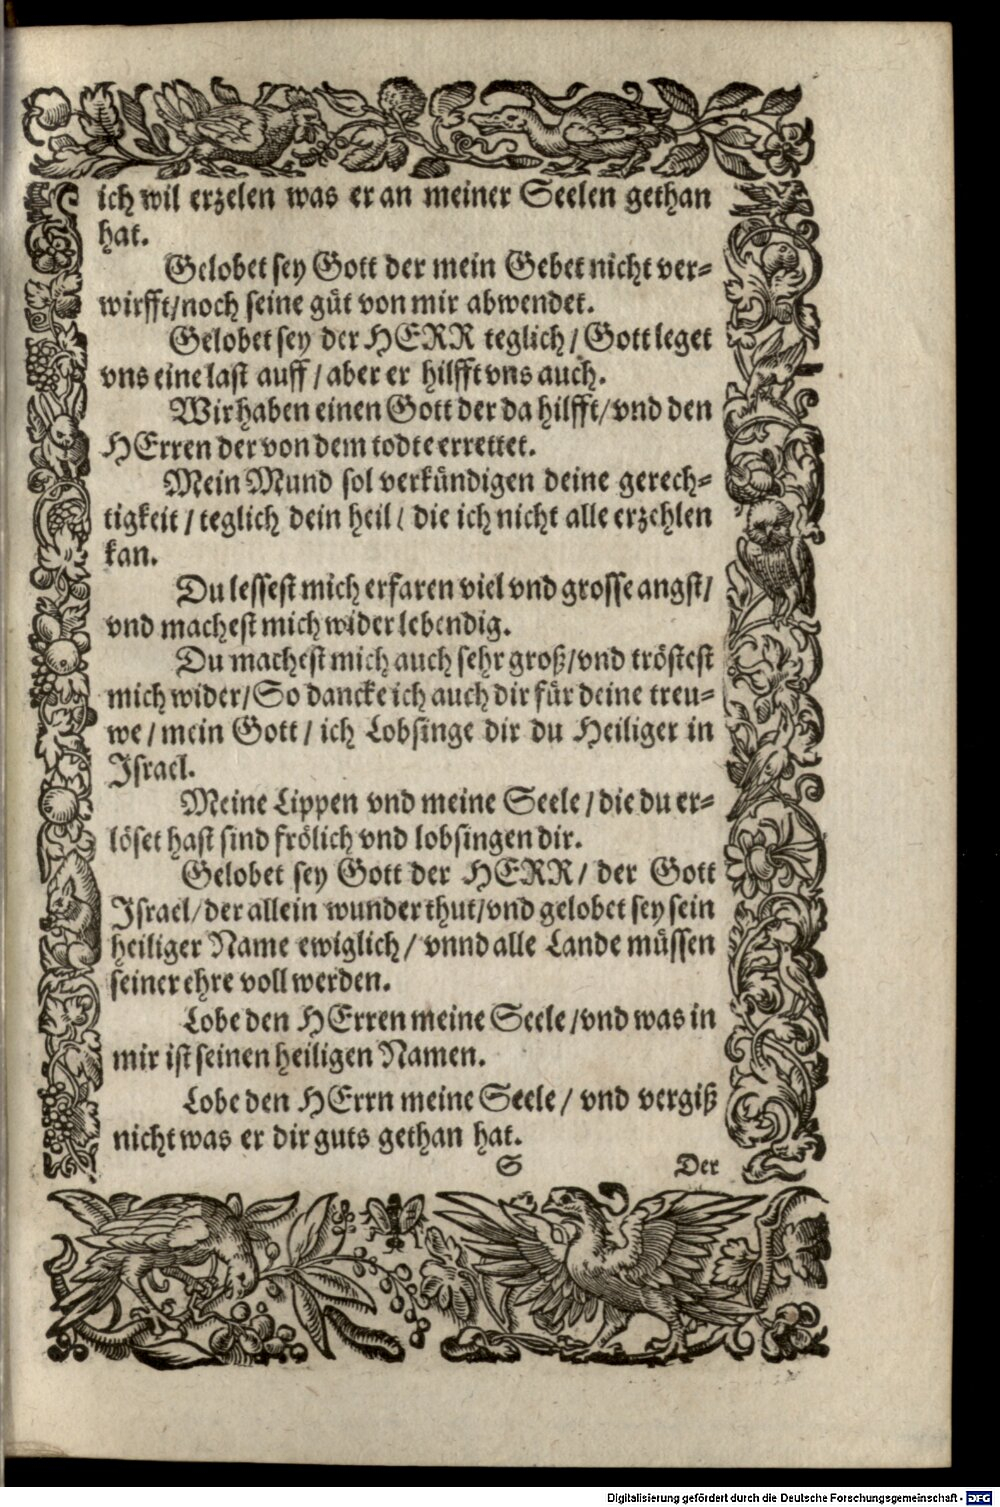 ich wil erzelen was er an meiner Seelen gethan
hat.
Gelobet sey Gott der mein Gebet nicht ver-
wirfft/noch seine güt von mir abwendet.
Gelobet sey der HERR teglich/ Gott leget
vns eine last auff / aber er hilfft vns auch.
Wir haben einen Gott der da hilfft/vnd den
HErren der von dem todte errettet.
Mein Mund sol verkündigen deine gerech-
tigkeit / teglich dein heil / die ich nicht alle erzehlen
kan.
Du lessest mich erfaren viel vnd grosse angst/
vnd machest mich wider lebendig.
Du machest mich auch sehr groß/vnd tröstest
mich wider/So dancke ich auch dir für deine treu-
we / mein Gott / ich Lobsinge dir du Heiliger in
Israel.
Meine Lippen vnd meine Seele / die du er-
löset hast sind frölich vnd lobsingen dir.
Gelobet sey Gott der HERR/ der Gott
Israel/der allein wunder thut/vnd gelobet sey sein
heiliger Name ewiglich/ vnnd alle Lande müssen
seiner ehre voll werden.
Lobe den HErren meine Seele /vnd was in
mir ist seinen heiligen Namen.
Lobe den HErrn meine Seele / vnd vergiß
nicht was er dir guts gethan hat.
S Der
Digitalisierung gefördert durch die Deutsche Forschungsgemeinschaft - DFG